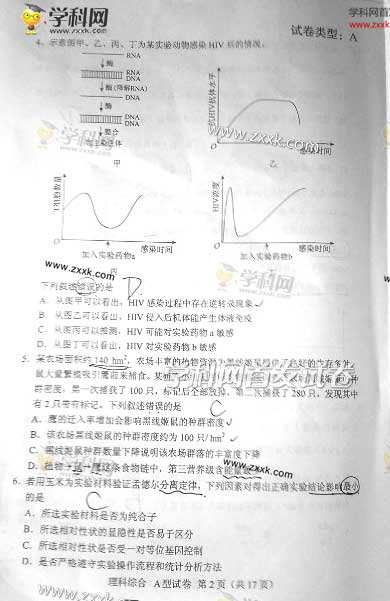 学科网
www.zxxk.com
试卷类型：A
学科网首发
www.zxxk.com
4．示意图甲、乙、丙、丁为某实验动物感染 HIV 后的情况。
RNA
酶
RNA
DNA
酶(降解RNA)
DNA
酶
DNA
DNA
整合
宿主染色体
甲
抗HIV抗体水平
感染时间
乙
www.zxxk.com
T细胞数量
感染时间
加入实验药物a
丙
HIV浓度
感染时间
加入实验药物b
学科网
www.zxxk.com
下列叙述错误的是
D
A．从图甲可以看出，HIV 感染过程中存在逆转录现象
B．从图乙可以看出，HIV 侵入后机体能产生体液免疫
C．从图丙可以推测，HIV 可能对实验药物 a 敏感
D．从图丁可以看出，HIV 对实验药物 b 敏感
学科网首发试卷
5．某农场面积约 140 hm²，农场丰富的植物资源为黑线姬鼠提供了良好的生存条件，
鼠大量繁殖吸引鹰前来捕食。
密度，第一次捕获了 100 只，标记后全部放掉，第二次捕获了 280 只，发现其中
有 2 只带有标记。下列叙述错误的是
C
A．鹰的迁入率增加会影响黑线姬鼠的种群密度
B．该农场黑线姬鼠的种群密度约为 100 只/hm²
C．黑线姬鼠种群数量下降说明该农场群落的丰富度下降
D．植物→鼠→鹰这条食物链中，第三营养级含能量
www.zxxk.com
6．若用玉米为实验材料验证孟德尔分离定律，下列因素对得出正确实验结论影响最小
的是
C
A．所选实验材料是否为纯合子
B．所选相对性状的显隐性是否易于区分
C．所选相对性状是否受一对等位基因控制
D．是否严格遵守实验操作流程和统计分析方法
学科网
www.zxxk.com
理科综合 A型试卷 第 2 页（共 17 页）